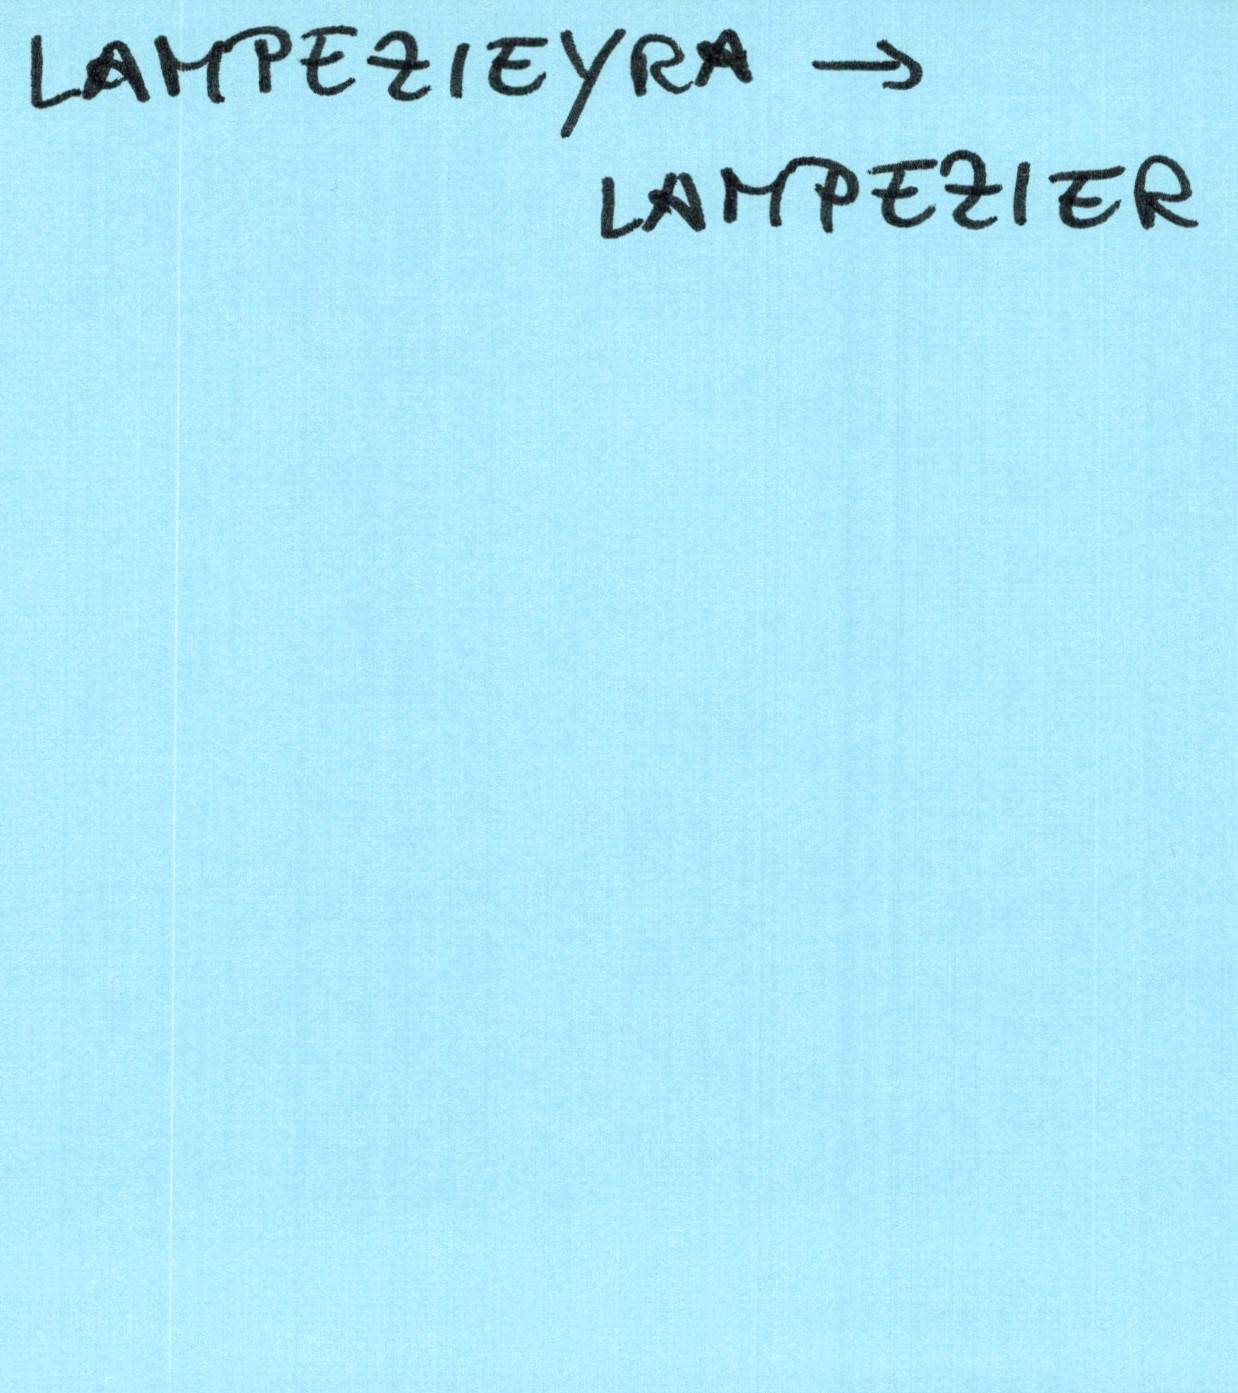 LAMPEZIEYRA →
LAMPEZIER